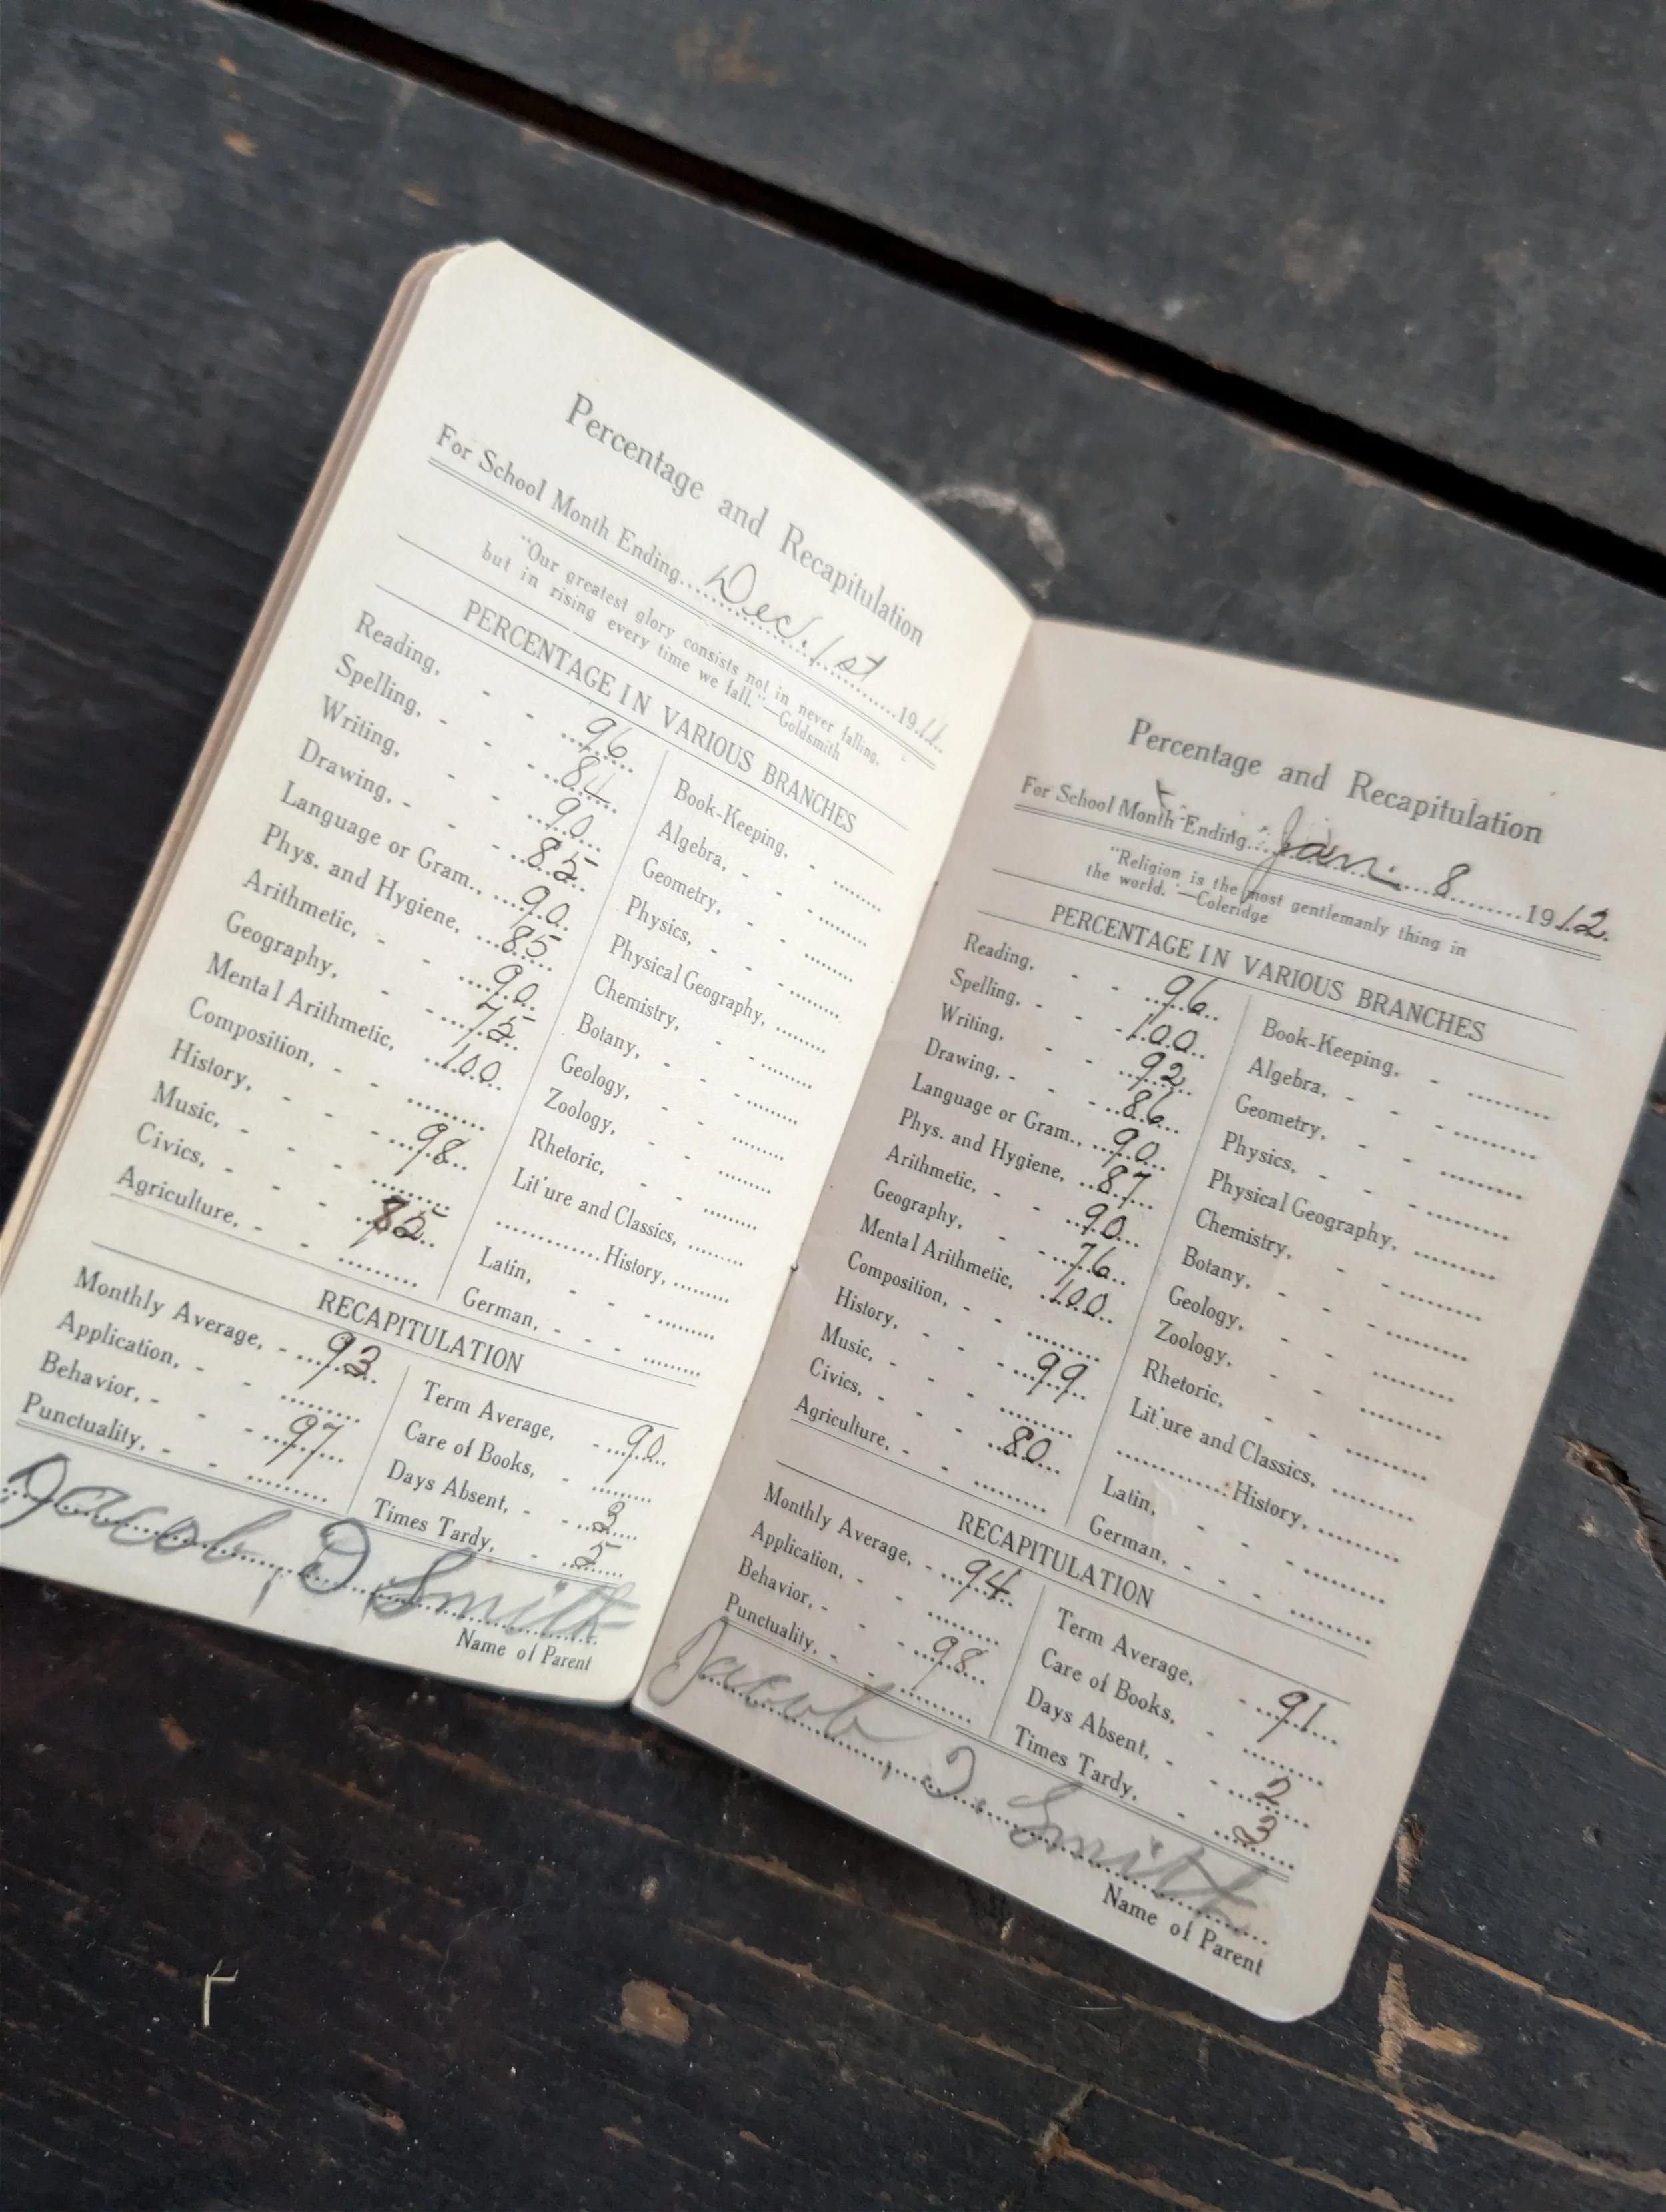 Percentage and Recapitulation
For School Month Ending Dec. 1st 1911
"Our greatest glory consists not in never falling,
but in rising every time we fall."—Goldsmith
PERCENTAGE IN VARIOUS BRANCHES
Reading, 96
Spelling,
Writing, 90
Drawing, 85
Language or Gram., 90
Phys. and Hygiene, 85
Arithmetic, 90
Geography, 75
Mental Arithmetic, 100
Composition,
History, 98
Music,
Civics,
Agriculture,
Book-Keeping,
Algebra,
Geometry,
Physics,
Physical Geography,
Chemistry,
Botany,
Geology,
Zoology,
Rhetoric,
Lit'ure and Classics,
History,
Latin,
German,
RECAPITULATION
Monthly Average, 93
Application,
Behavior, 97
Punctuality,
Term Average, 90
Care of Books,
Days Absent, 3
Times Tardy, 5
Jacob D Smith
Name of Parent
Percentage and Recapitulation
For School Month Ending Jan. 8 1912
"Religion is the most gentlemanly thing in
the world."—Coleridge
PERCENTAGE IN VARIOUS BRANCHES
Reading, 96
Spelling, 100
Writing, 92
Drawing, 86
Language or Gram., 90
Phys. and Hygiene, 87
Arithmetic, 90
Geography, 76
Mental Arithmetic, 100
Composition,
History, 99
Music,
Civics, 80
Agriculture,
Book-Keeping,
Algebra,
Geometry,
Physics,
Physical Geography,
Chemistry,
Botany,
Geology,
Zoology,
Rhetoric,
Lit'ure and Classics,
History,
Latin,
German,
RECAPITULATION
Monthly Average, 94
Application,
Behavior, 98
Punctuality,
Term Average, 91
Care of Books,
Days Absent, 2
Times Tardy, 3
Jacob D. Smith
Name of Parent